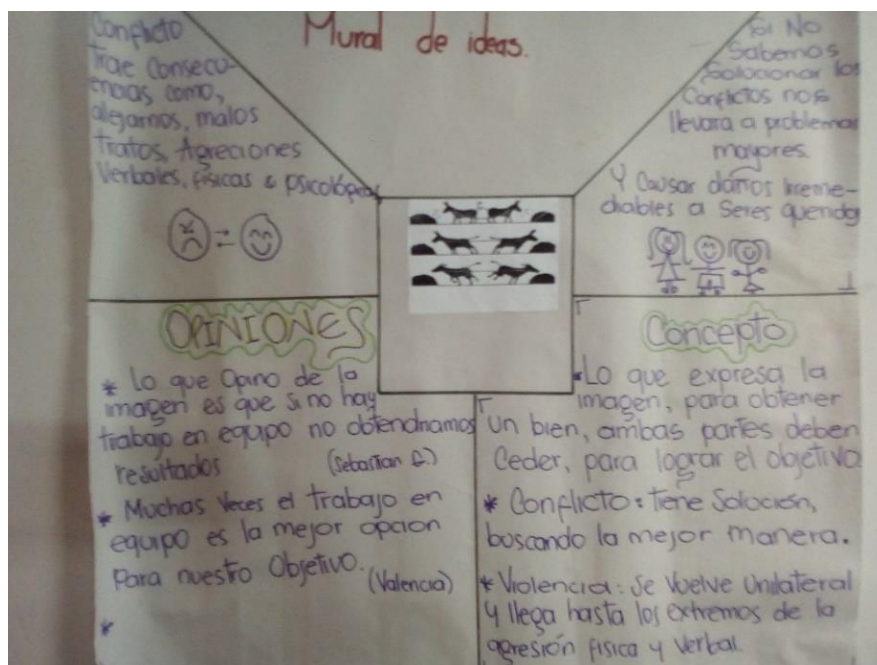 Mural de ideas.
Conflicto
Trae Consecu-
encias, como,
alejarnos, malos
tratos, Agreciones
Verbales, físicas & psicológicas
Si No
Sabemos
Solocionar los
Conflictos nos
llevara a problemas
mayores.
Y Causar daños Irreme-
diables a Seres querido
OPINIONES
* Lo que Opino de la
imagen es que si no hay
trabajo en equipo no obtendriamos
resultados (Sebastian G.)
* Muchas Veces el trabajo en
equipo es la mejor opcion
Para nuestro Objetivo. (Valencia)
*
Concepto
* Lo que expresa la
imagen, para obtener
un bien, ambas partes deben
Ceder, para lograr el objetivo
* Conflicto: tiene Solocien,
buscando la mejor manera.
* Violencia: Se Vuelve Unilateral
Y llega hasta los extremos de la
agresión fisica y Verbal.